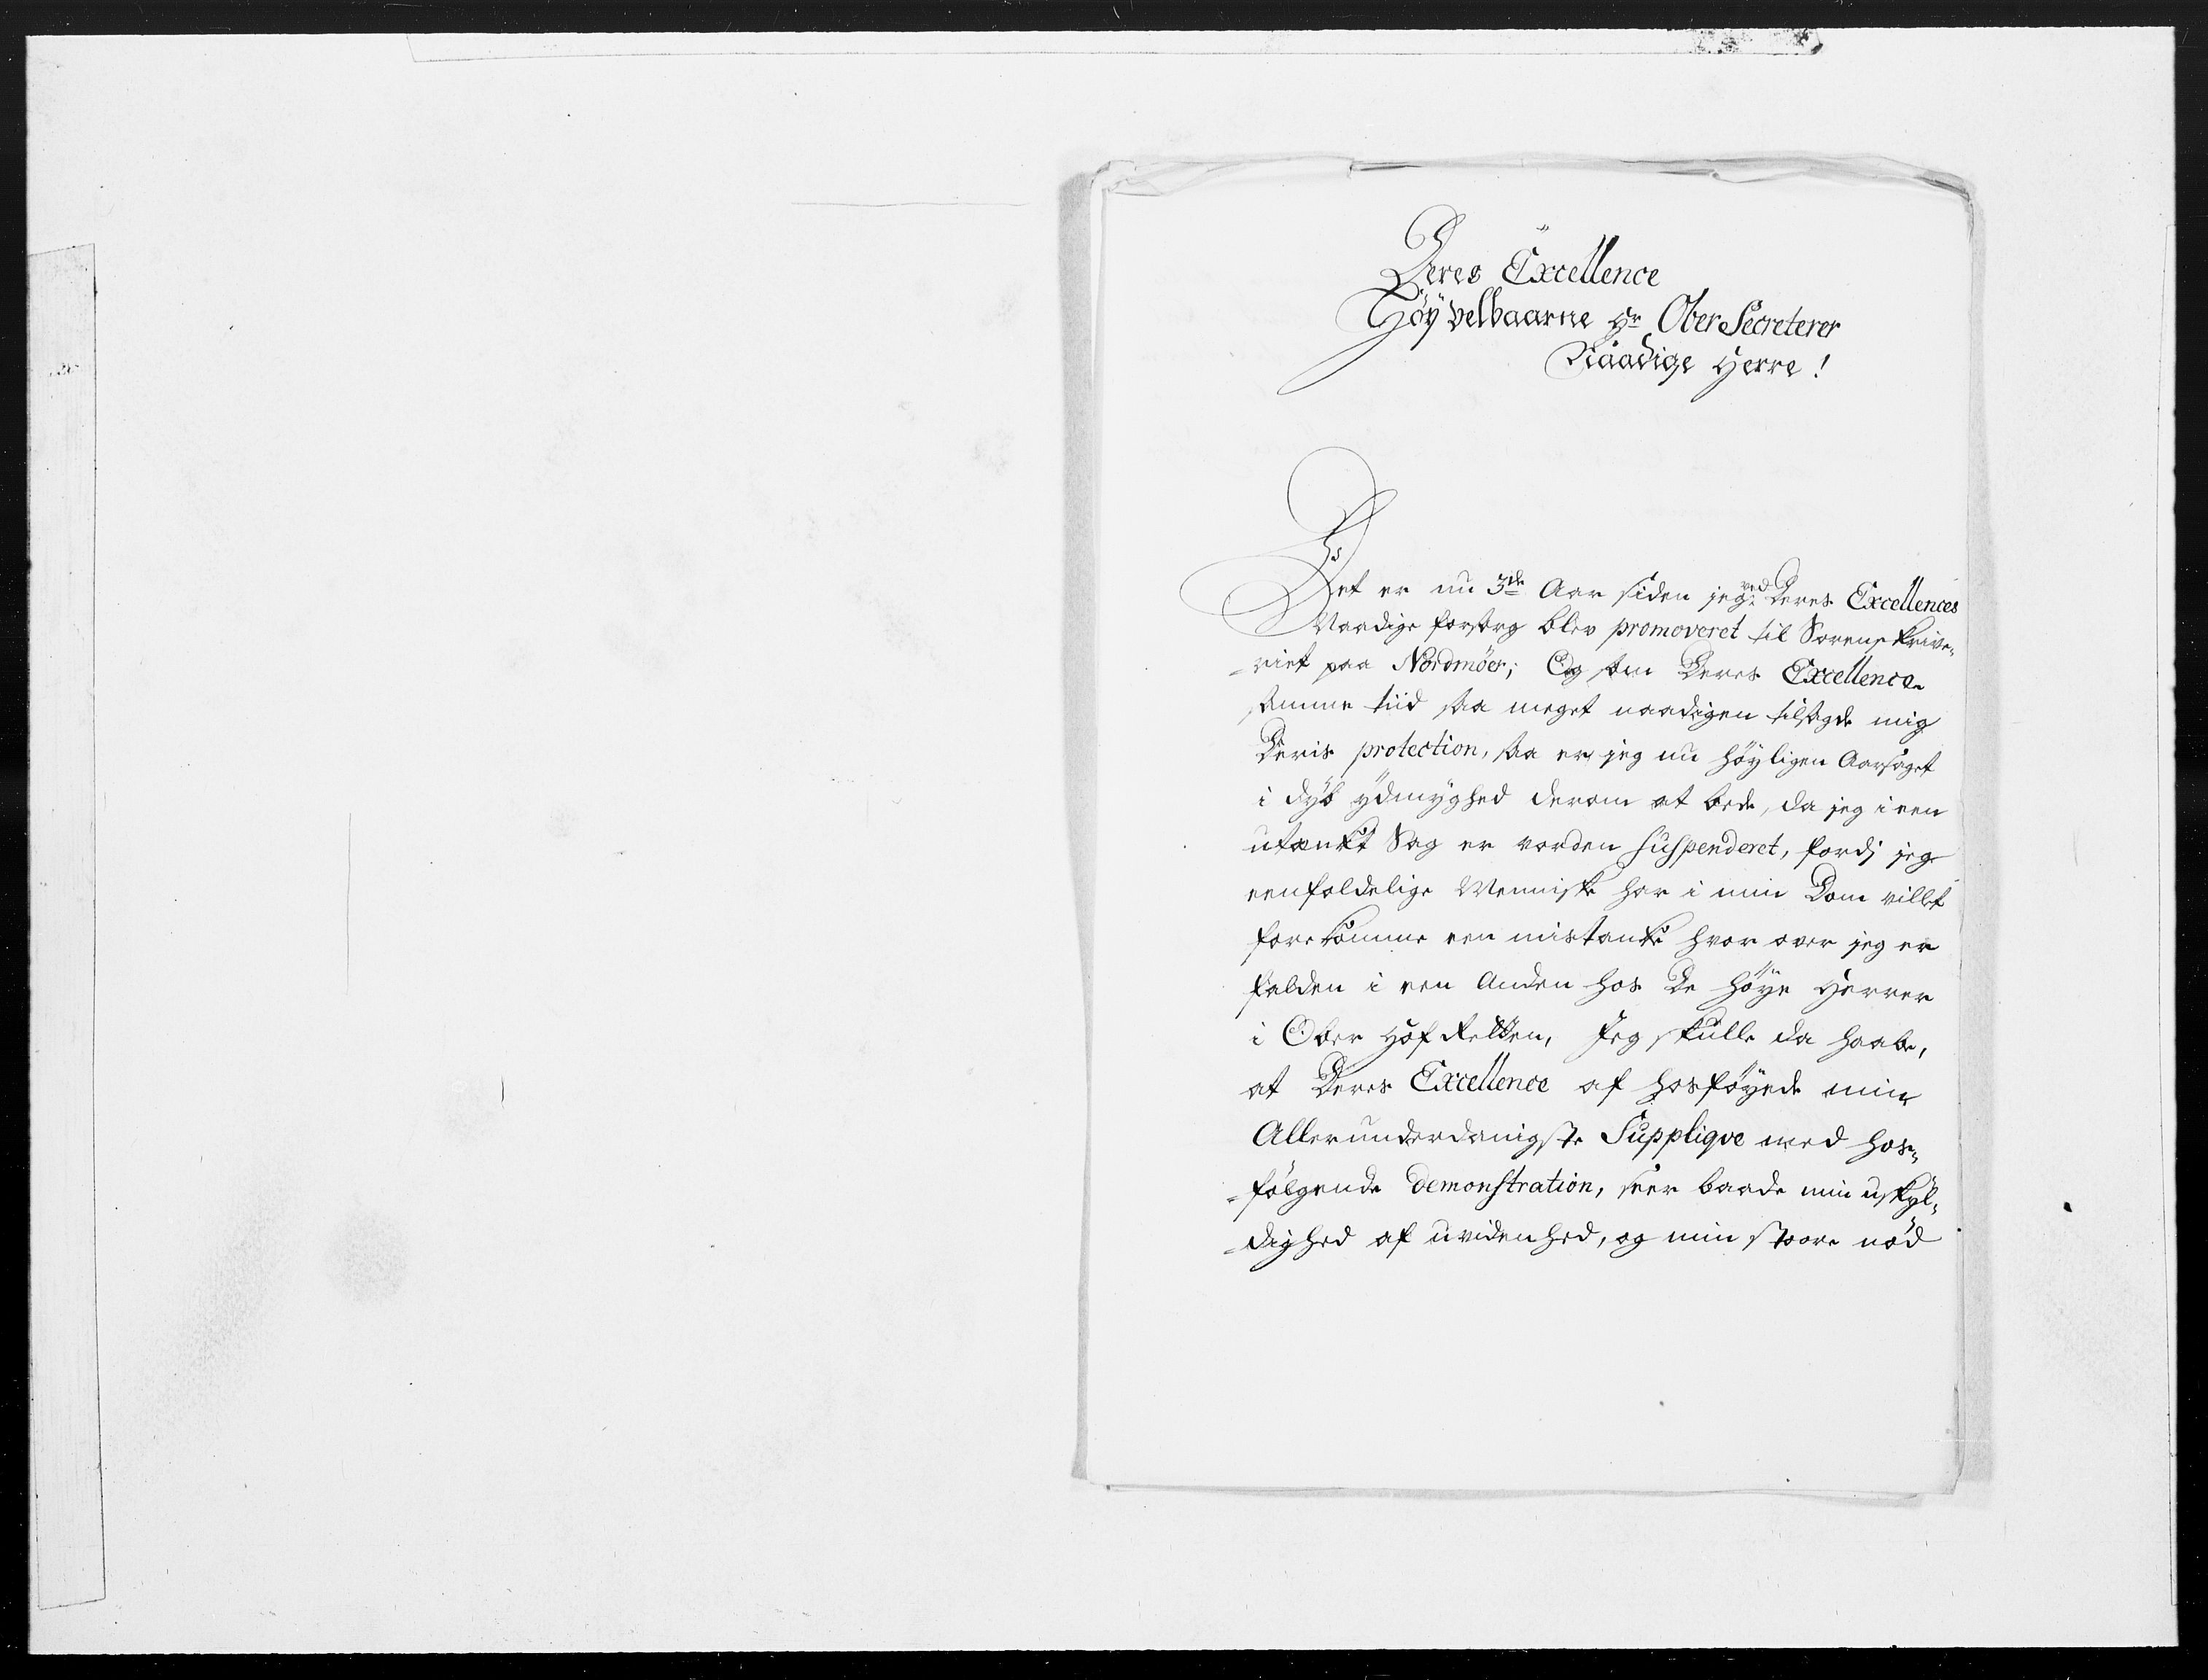 Deres Excellence
Höÿvelbaarne Hr Ober Secreterer
Naadige Herre!
Det er nu 3de Aar siden jeg ved Deres Excellences
Naadige forsorg blev promoveret til Sorenskrive„
„riet paa Nordmöer; Og som Deres Excellence
samme tiid saa meget naadigen tilsagde mig
Deris protection, saa er jeg nu höyligen Aarsaget
i dÿb ÿdmÿghed derom at bede, da jeg i een
utænkt Sag er vorden suspenderet, fordj jeg
eenfoldelige Menniske har i min Dom villet
forekomme een mistanke hvor over jeg er
falden i een Anden hos De höÿe Herrer
i Ober Hof Retten, Jeg skulle da haabe,
at Deres Excellence af hosföÿede min
Allerunderdanigste Supplique med hos„
„fölgende demonstration, seer baade min uskÿl„
„dighed af uvidenhed, og min stoore nöd